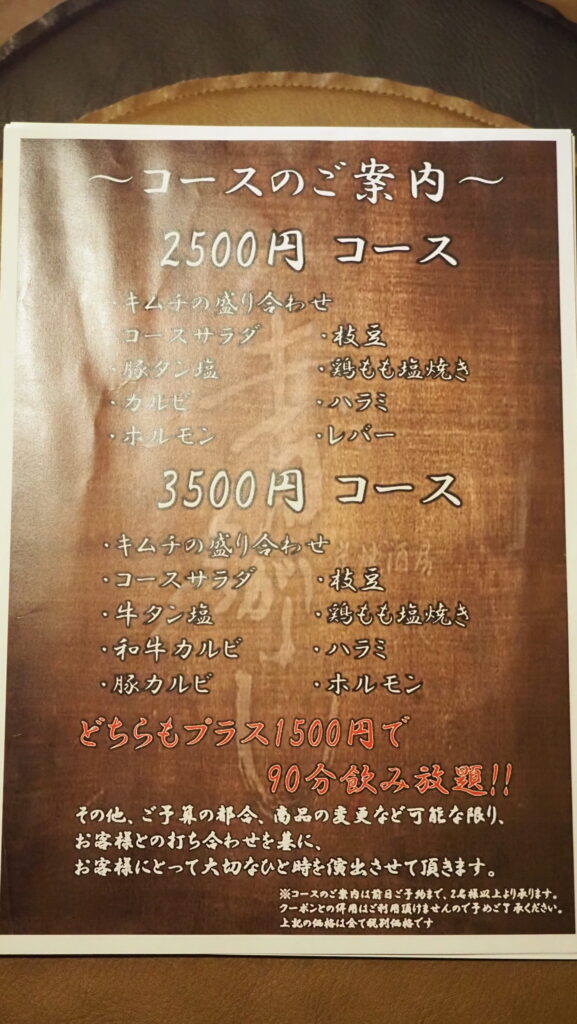 ～コースのご案内～
2500円 コース
・キムチの盛り合わせ
・コースサラダ ・枝豆
・豚タン塩 ・鶏もも塩焼き
・カルビ ・ハラミ
・ホルモン ・レバー
3500円 コース
・キムチの盛り合わせ
・コースサラダ ・枝豆
・牛タン塩 ・鶏もも塩焼き
・和牛カルビ ・ハラミ
・豚カルビ ・ホルモン
どちらもプラス1500円で
90分飲み放題!!
その他、ご予算の都合、商品の変更など可能な限り、
お客様との打ち合わせを基に、
お客様にとって大切なひと時を演出させて頂きます。
※コースのご案内は前日ご予約まで、2名様以上より承ります。
クーポンとの併用はご利用頂けませんので予めご了承ください。
上記の価格は全て税別価格です